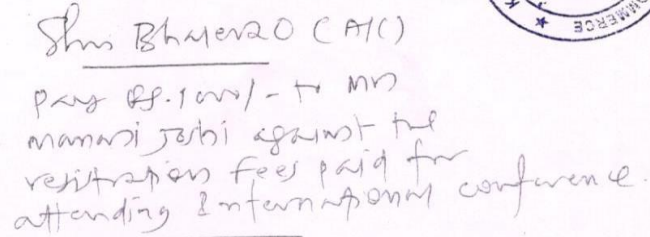 Shri Bhalerao (A/C)
COMMERCE ★ K
Pay Rs. 1000/- to Mrs
Manasi Joshi against the
resitration fees paid for
attending International conference.